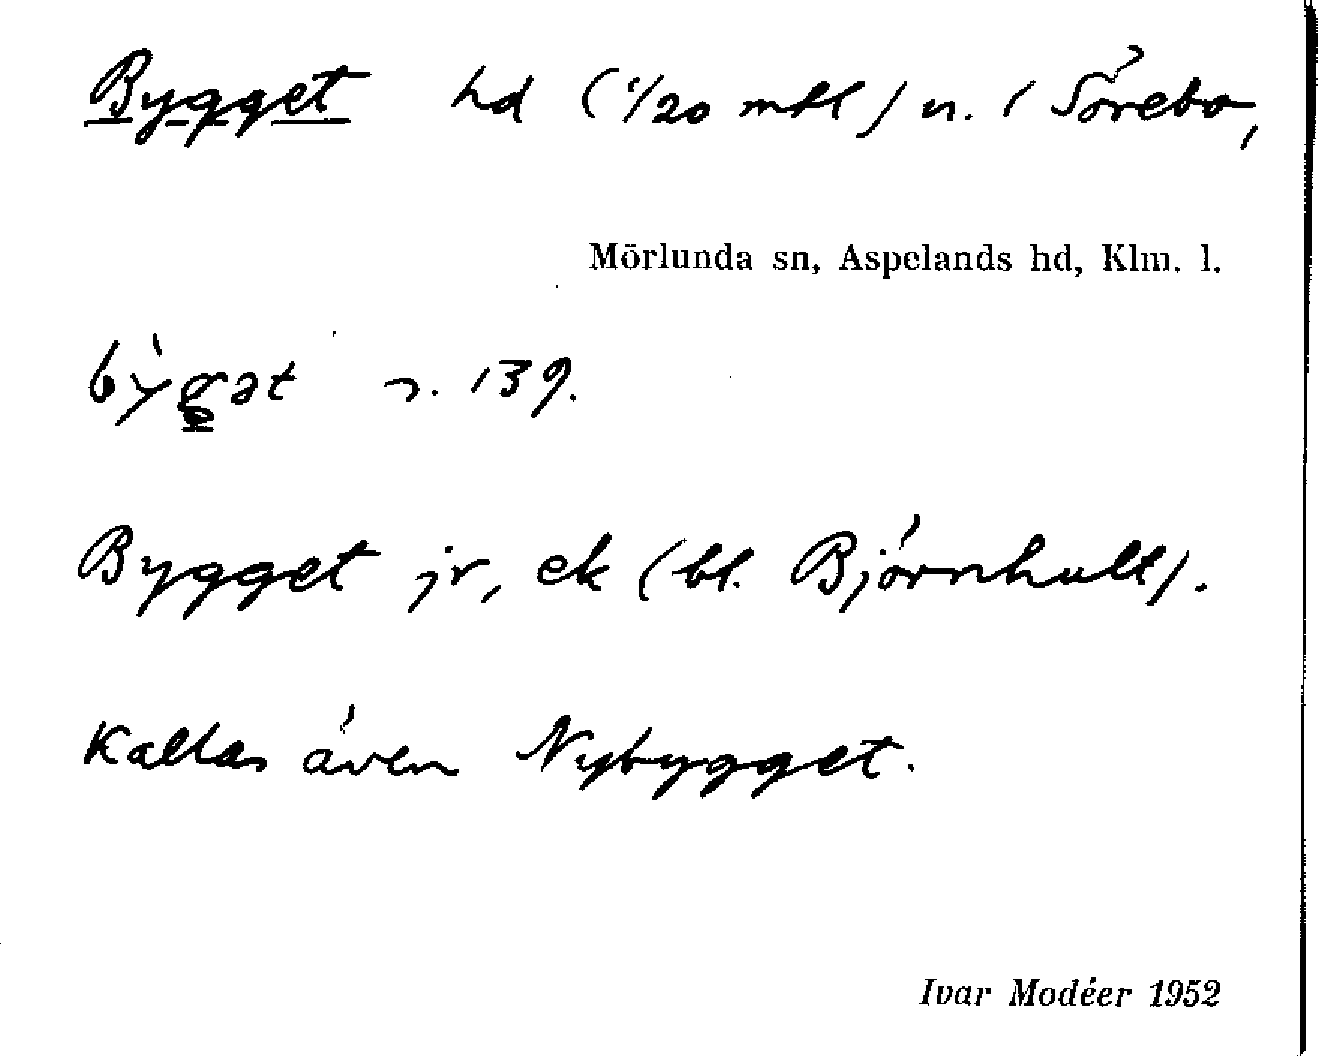 Bygget hd (1/20 mtl) n. i Sörebo,
Mörlunda sn, Aspelands hd, Klm. l.
bỳgət n. 139.
Bygget jr, ek (bl. Björnhult).
Kallas även Nybygget.
Ivar Modéer 1952